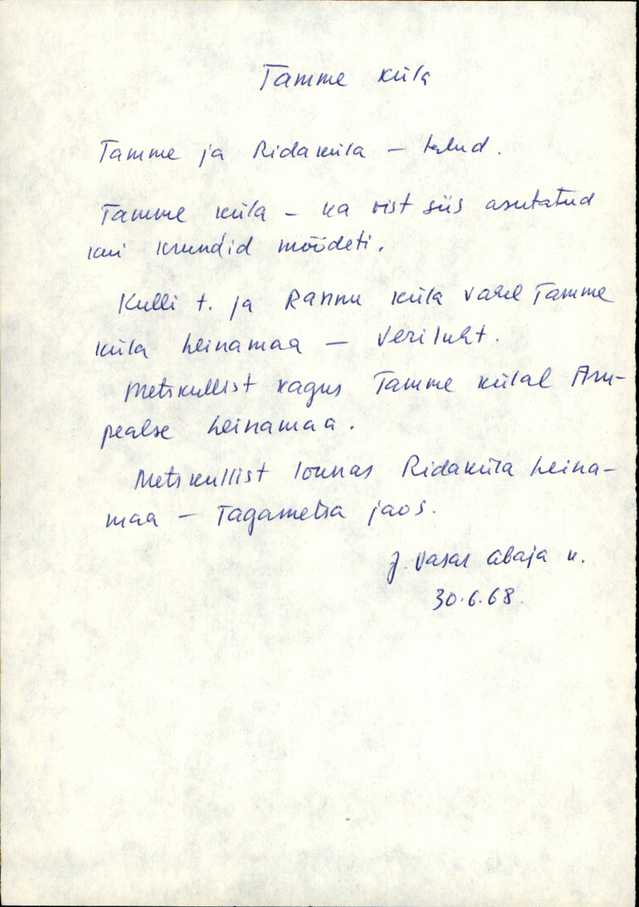 Tamme küla
Tamme ja Ridaküla – talud.
Tamme küla – ka vist siis asutatud
kui krundid mõõdeti.
Kulli t. ja Rannu küla vahel Tamme
küla heinamaa – Veriluht.
Metskullist kagus Tamme külal Aru-
pealse heinamaa.
Metskullist lõunas Ridaküla heina-
maa – Tagametsa jaos.
J. Vasar Abaja k.
30.6.68.